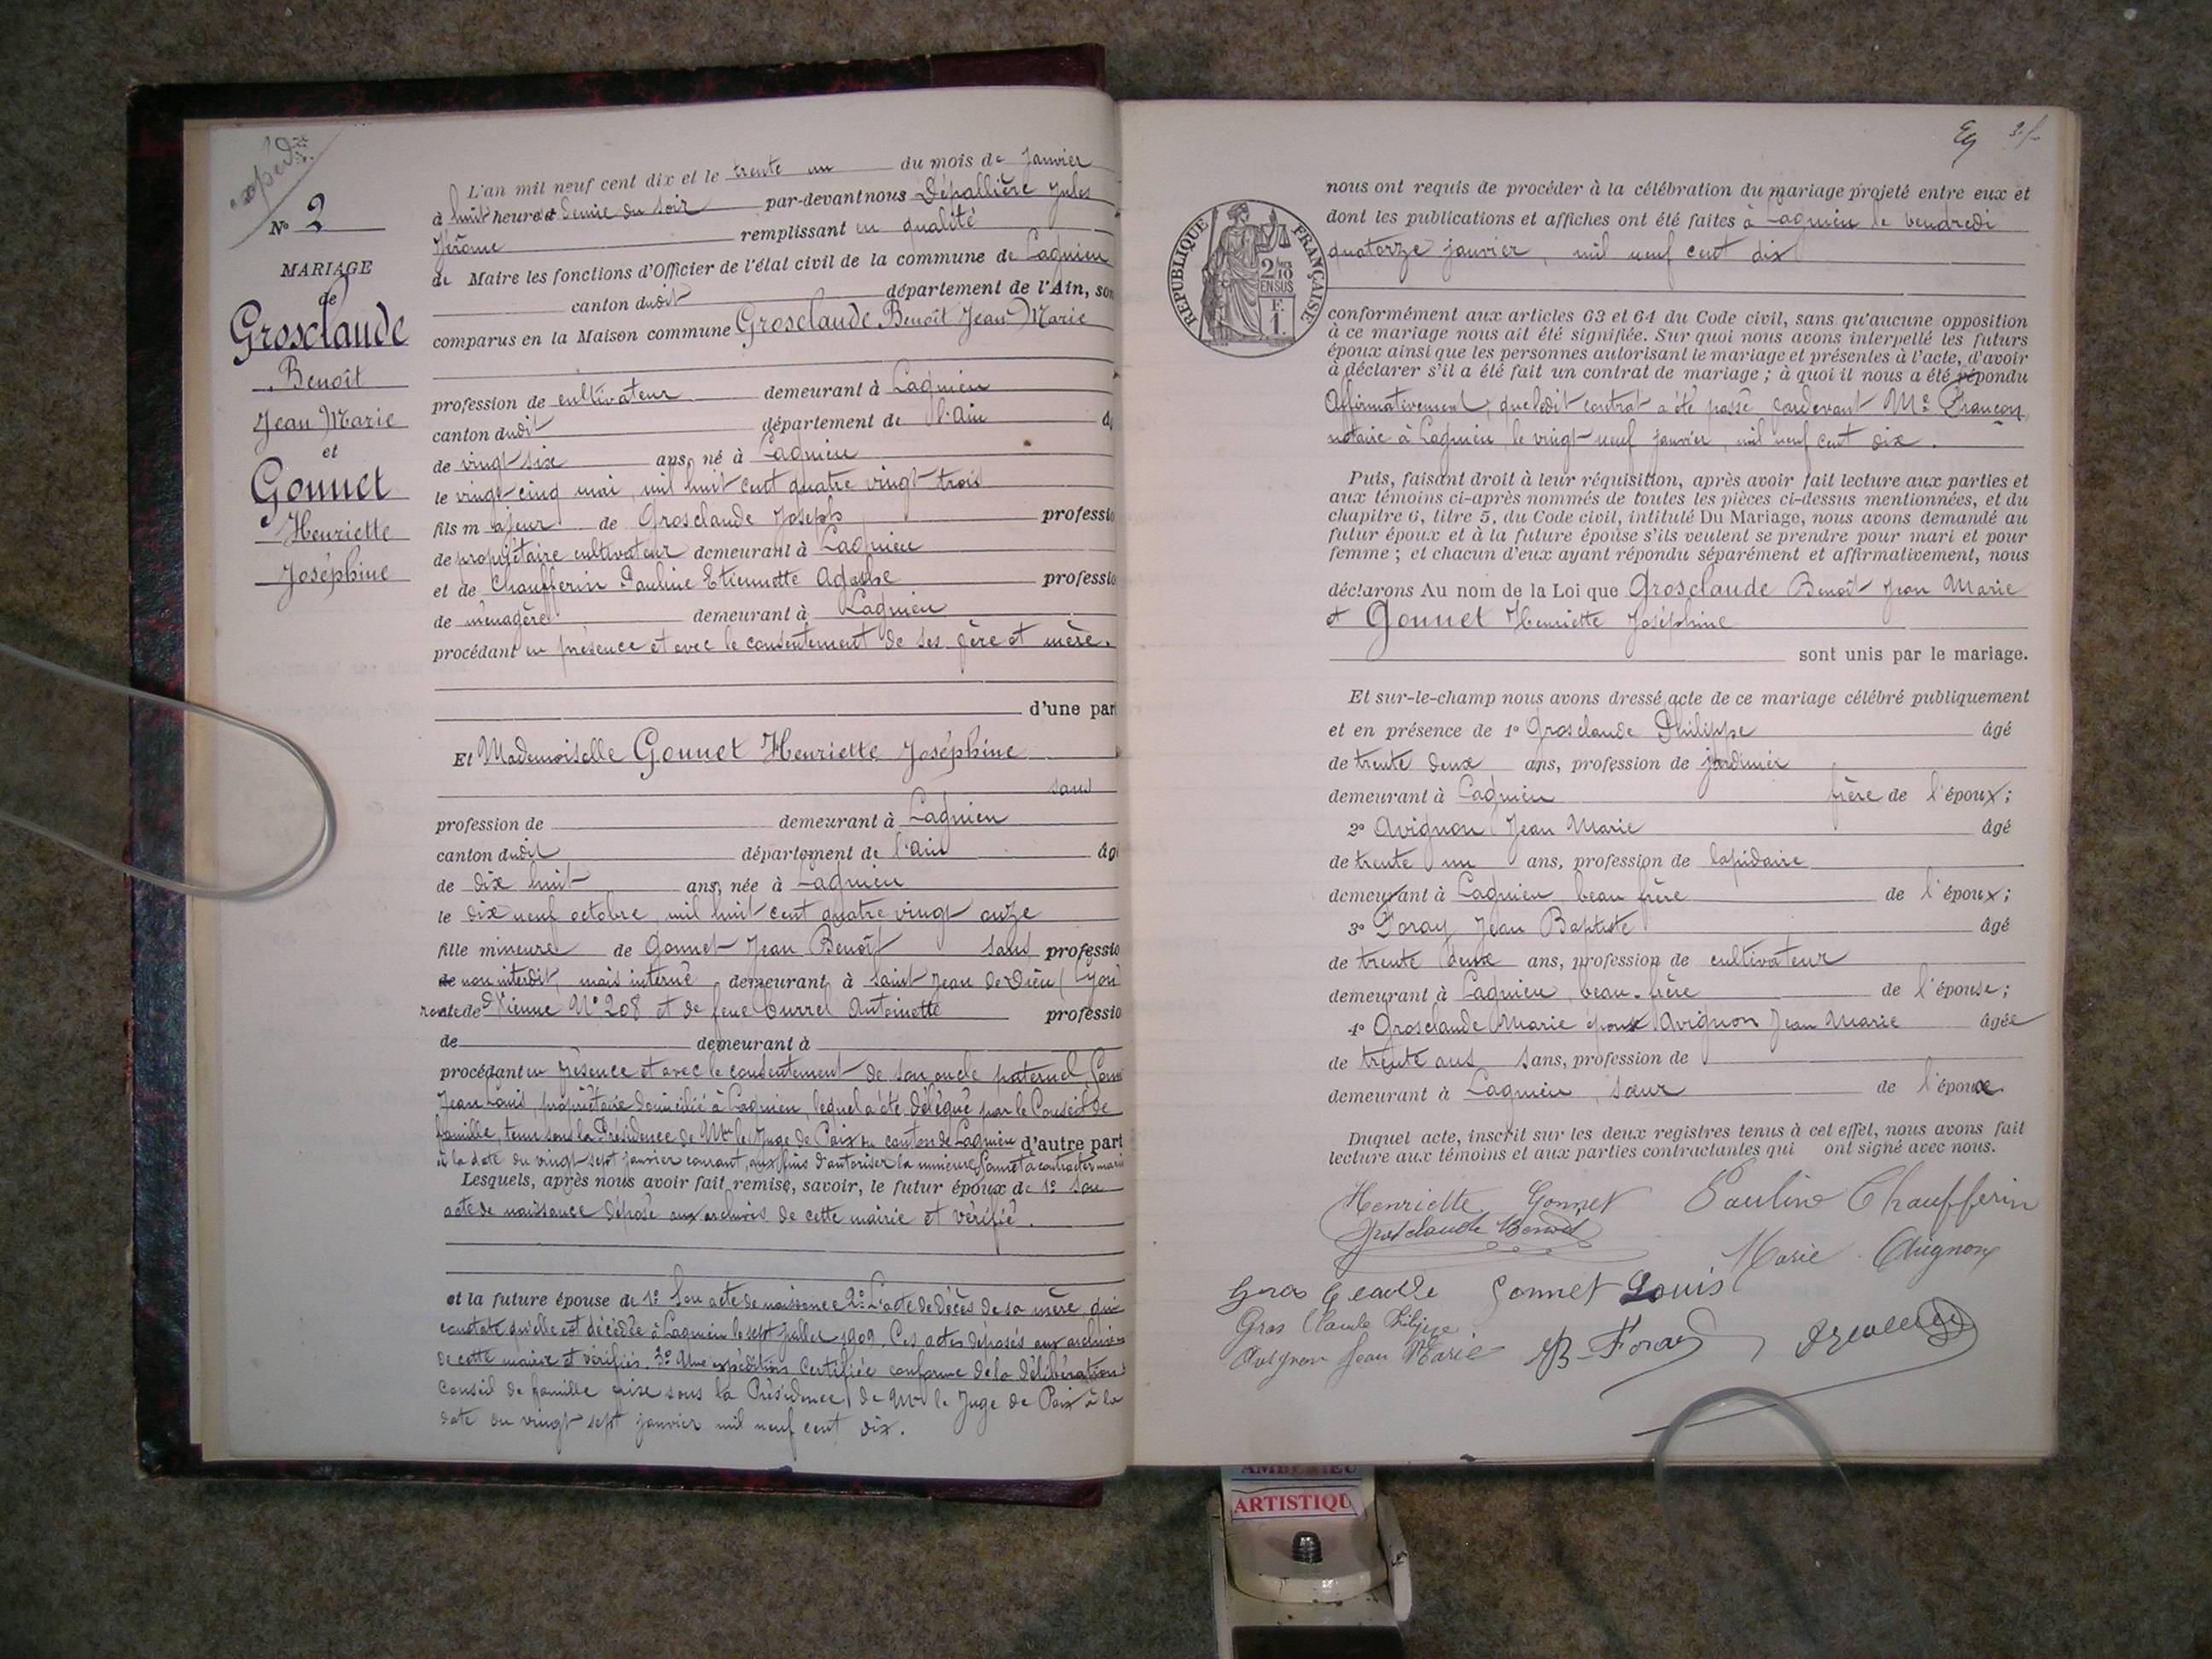 expéd
N° 2
MARIAGE
de
Grosclaude
Benoît
Jean Marie
et
Gonnet
Henriette
Joséphine
L'an mil neuf cent dix et le trente un du mois de Janvier
à huit heures et demie du soir par-devant nous Dépallière Jules
Jérôme remplissant en qualité
de Maire les fonctions d'Officier de l'état civil de la commune de Lagnieu
canton dudit département de l'Ain, son
comparus en la Maison commune Grosclaude Benoît Jean Marie
profession de cultivateur demeurant à Lagnieu
canton dudit département de l'Ain
de vingt-six ans, né à Lagnieu
le vingt-cinq mai, mil huit cent quatre vingt-trois
fils majeur de Grosclaude Joseph professio
de propriétaire cultivateur demeurant à Lagnieu
et de Chaufferin Pauline Etiennette Agathe professio
de ménagère demeurant à Lagnieu
procédant en présence et avec le consentement de ses père et mère.
d'une part
Et Mademoiselle Gonnet Henriette Joséphine
sans
profession de demeurant à Lagnieu
canton dudit département de l'Ain âgé
de dix huit ans, née à Lagnieu
le dix neuf octobre, mil huit cent quatre vingt onze
fille mineure de Gonnet Jean Benoît sans professio
de non interdit, mais interné demeurant à Saint Jean de Dieu (Lyon)
route de Vienne N° 208 et de feue Curret Antoinette professio
de demeurant à
procédant en présence et avec le consentement de son oncle paternel, Gonnet
Jean Louis, propriétaire domicilié à Lagnieu, lequel a été délégué par le Conseil de
famille, tenu sous la Présidence de Mr le Juge de Paix du canton de Lagnieu d'autre part
à la date du vingt-sept janvier courant, aux fins d'autoriser la mineure Gonnet à contracter maria
Lesquels, après nous avoir fait remise, savoir, le futur époux de 1° Son
acte de naissance déposé aux archives de cette mairie et vérifié.
et la future épouse de 1° Son acte de naissance 2° L'acte de décès de sa mère, qui
constate qu'elle est décédée à Lagnieu le sept juillet 1909. Ces actes déposés aux archives
de cette mairie et vérifiés. 3° Une expédition certifiée conforme de la délibération
conseil de famille prise sous la Présidence de Mr le Juge de Paix à la
date du vingt-sept janvier mil neuf cent dix.
RÉPUBLIQUE FRANÇAISE
2/10 EN SUS
F. 1.
nous ont requis de procéder à la célébration du mariage projeté entre eux et
dont les publications et affiches ont été faites à Lagnieu le vendredi
quatorze janvier, mil neuf cent dix
conformément aux articles 63 et 64 du Code civil, sans qu'aucune opposition
à ce mariage nous ait été signifiée. Sur quoi nous avons interpellé les futurs
époux ainsi que les personnes autorisant le mariage et présentes à l'acte, d'avoir
à déclarer s'il a été fait un contrat de mariage ; à quoi il nous a été répondu
Affirmativement, que ledit contrat a été passé pardevant Me Françon,
notaire à Lagnieu le vingt-neuf janvier, mil neuf cent dix.
Puis, faisant droit à leur réquisition, après avoir fait lecture aux parties et
aux témoins ci-après nommés de toutes les pièces ci-dessus mentionnées, et du
chapitre 6, titre 5, du Code civil, intitulé Du Mariage, nous avons demandé au
futur époux et à la future épouse s'ils veulent se prendre pour mari et pour
femme ; et chacun d'eux ayant répondu séparément et affirmativement, nous
déclarons Au nom de la Loi que Grosclaude Benoît Jean Marie
et Gonnet Henriette Joséphine
sont unis par le mariage.
Et sur-le-champ nous avons dressé acte de ce mariage célébré publiquement
et en présence de 1° Grosclaude Philippe âgé
de trente deux ans, profession de jardinier
demeurant à Lagnieu frère de l'époux ;
2° Avignon Jean Marie âgé
de trente un ans, profession de lapidaire
demeurant à Lagnieu beau frère de l'époux ;
3° Foray Jean Baptiste âgé
de trente deux ans, profession de cultivateur
demeurant à Lagnieu, beau-frère de l'épouse ;
4° Grosclaude Marie épouse Avignon Jean Marie âgée
de trente ans sans, profession de
demeurant à Lagnieu, sœur de l'époux.
Duquel acte, inscrit sur les deux registres tenus à cet effet, nous avons fait
lecture aux témoins et aux parties contractantes qui ont signé avec nous.
Henriette Gonnet Pauline Chaufferin
Grosclaude Benoit
Marie Avignon
Gros Claude Gonnet Louis
Gros Claude Filipe
Avignon Jean Marie JB Foray
AMBERIEU
ARTISTIQU